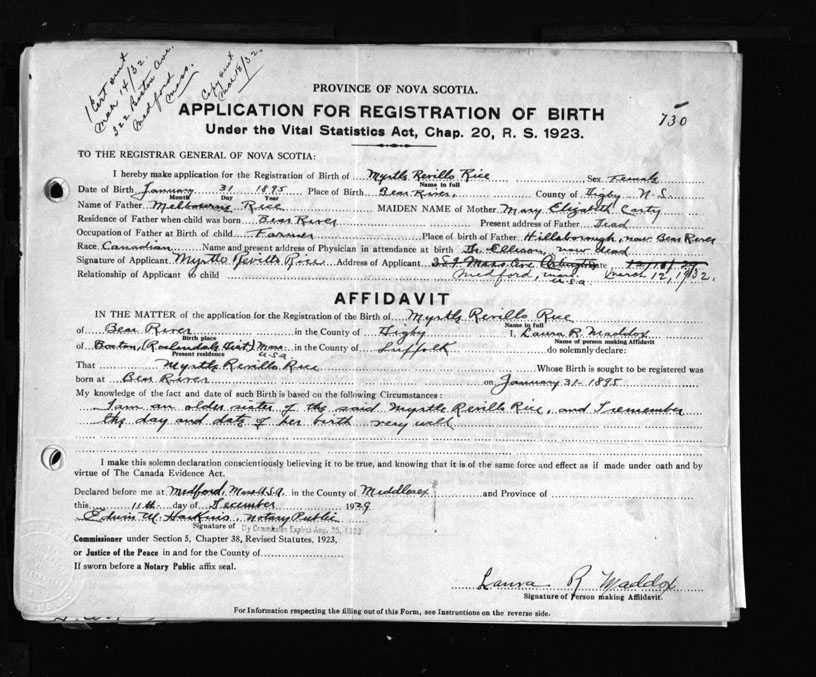 1 Cert out
Mar 14/32.
322 Boston Ave.
Medford
Mass.
Copy out
Mar 18/32.
730
PROVINCE OF NOVA SCOTIA.
APPLICATION FOR REGISTRATION OF BIRTH
Under the Vital Statistics Act, Chap. 20, R. S. 1923.
TO THE REGISTRAR GENERAL OF NOVA SCOTIA:
I hereby make application for the Registration of Birth of Myrtle Revillo Rice Sex Female
Name in full
Date of Birth January 31 1895 Place of Birth Bear River, County of Digby N.S.
Month Day Year
Name of Father Melbourne Rice MAIDEN NAME of Mother Mary Elizabeth Carty
Residence of Father when child was born Bear River Present address of Father Dead
Occupation of Father at Birth of child Farmer Place of birth of Father Hillsborough, now Bear River
Race Canadian Name and present address of Physician in attendance at birth Dr. Ellison, now dead
Signature of Applicant Myrtle Revillo Rice Address of Applicant Mass. Ave. Date
Relationship of Applicant to child Medford, Mass. U.S.A. March 12, 1932.
AFFIDAVIT
IN THE MATTER of the application for the Registration of the Birth of Myrtle Revillo Rice
Name in full
of Bear River in the County of Digby I, Laura R. Maddox
Birth place Name of person making Affidavit
of Boston, (Roslindale Dist) Mass U.S.A. in the County of Suffolk do solemnly declare:
Present residence
That Myrtle Revillo Rice Whose Birth is sought to be registered was
born at Bear River on January 31 - 1895
My knowledge of the fact and date of such Birth is based on the following Circumstances:
I am an older sister of the said Myrtle Revillo Rice, and I remember
the day and date of her birth very well
I make this solemn declaration conscientiously believing it to be true, and knowing that it is of the same force and effect as if made under oath and by
virtue of The Canada Evidence Act.
Declared before me at Medford, Mass U.S.A. in the County of Middlesex and Province of
this 11th day of December 1929
Edwin W. Harkins, Notary Public
Signature of My Commission Expires Aug. 25, 1933
Commissioner under Section 5, Chapter 38, Revised Statutes, 1923,
or Justice of the Peace in and for the County of
If sworn before a Notary Public affix seal.
Laura R Maddox
Signature of Person making Affidavit.
For Information respecting the filling out of this Form, see Instructions on the reverse side.